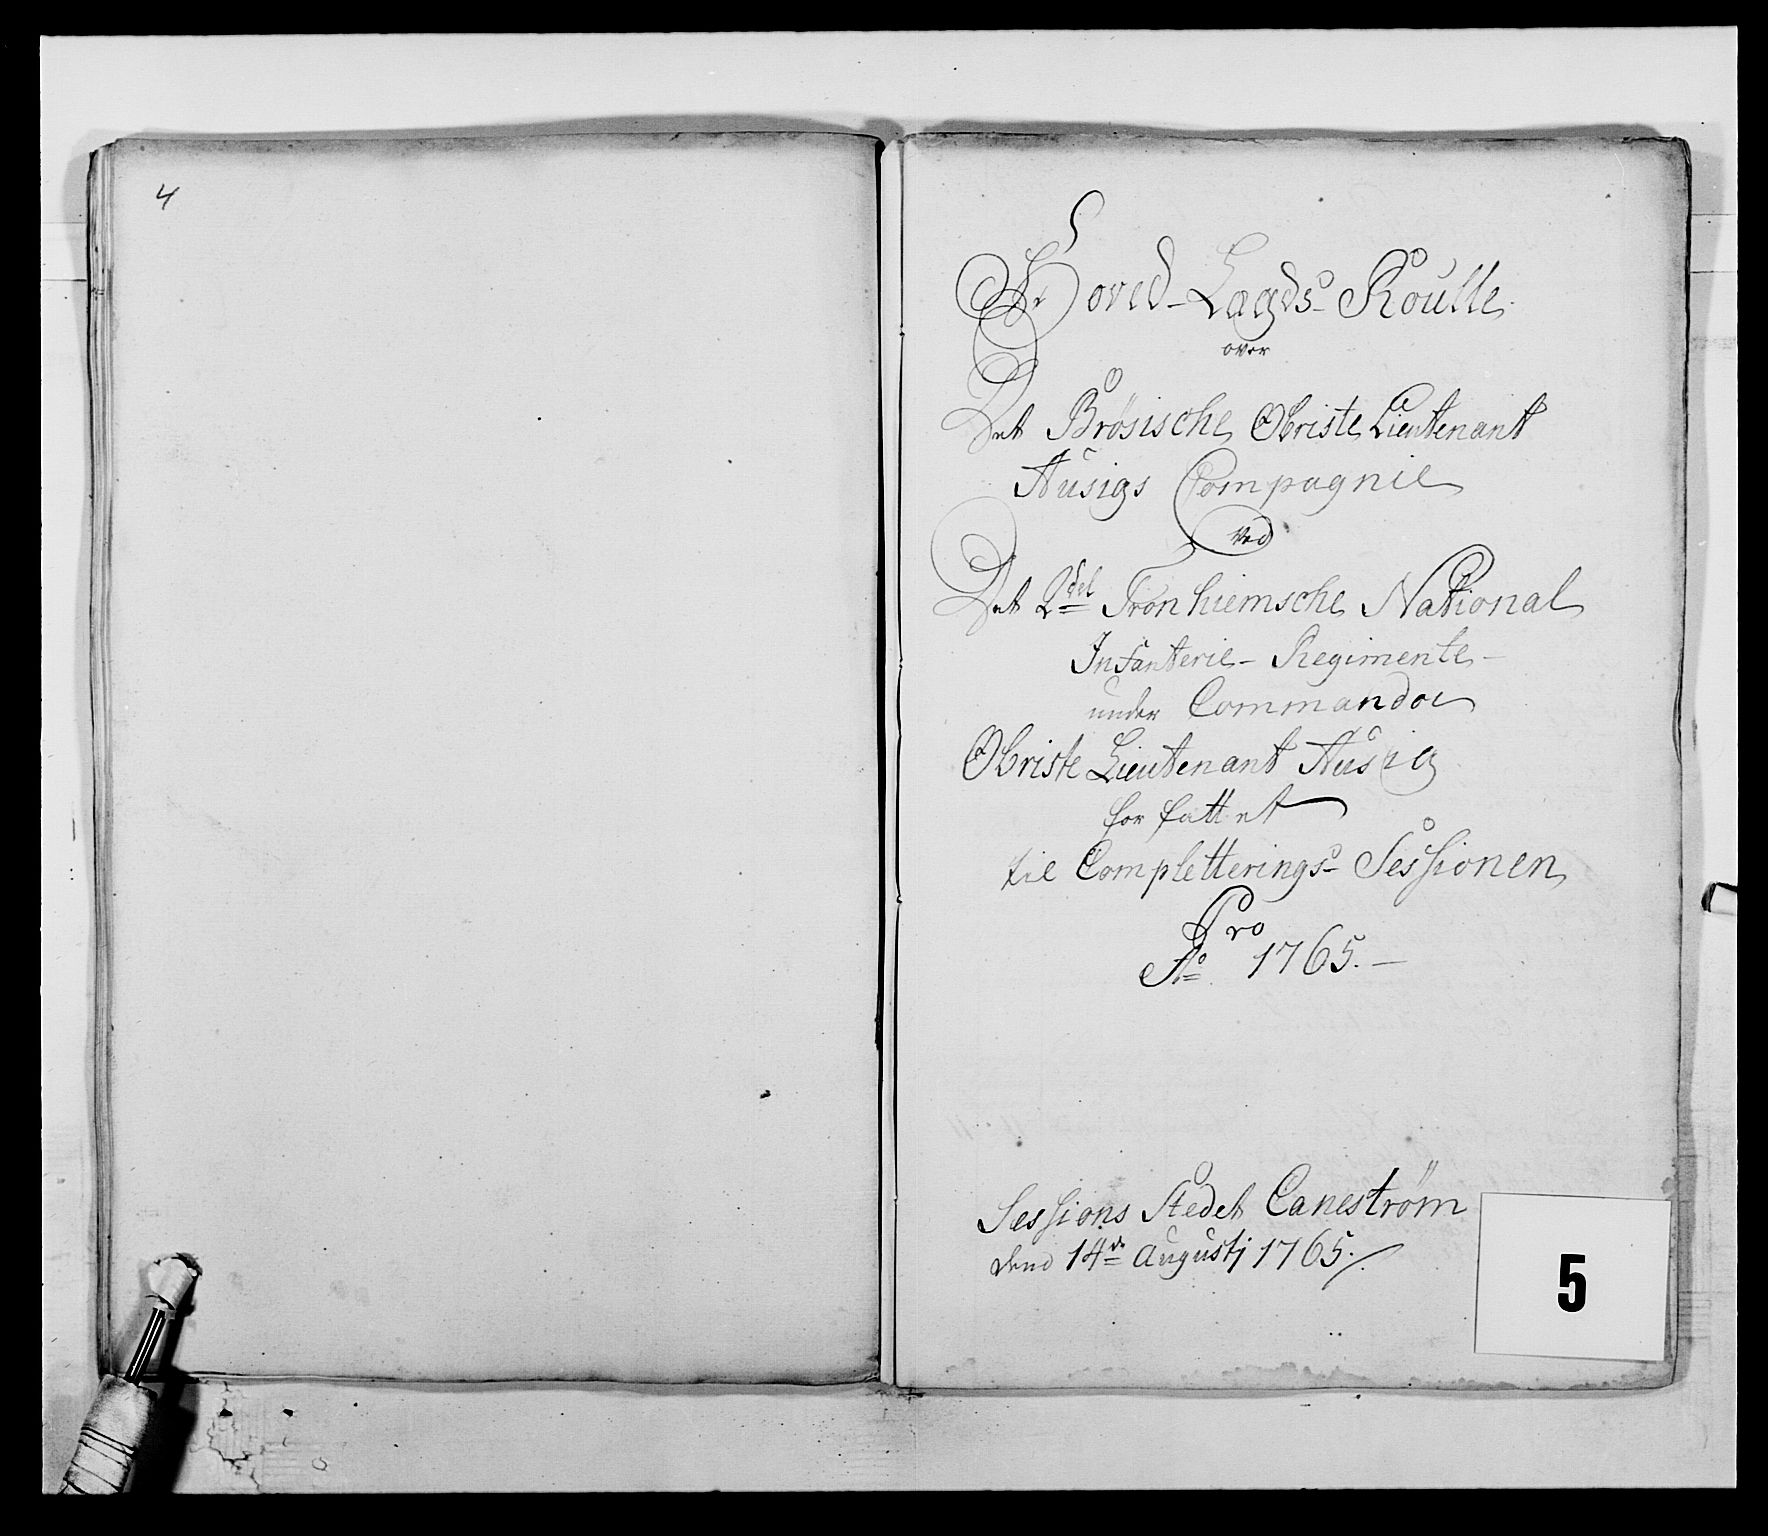 4
Hoved-Lægds-Roulle
over
Det Brøsische Obriste Lieutenant
Ausigs Compagnie
ved
Det 2det Tronhiemsche National
Infanterie-Regimente-
under Commando
Obriste Lieutenant Ausig
forfattet
til Completterings-Sessionen
Pro
Ao 1765.-
Sessions Stedet Caneström
dend 14de Augustj 1765.
5